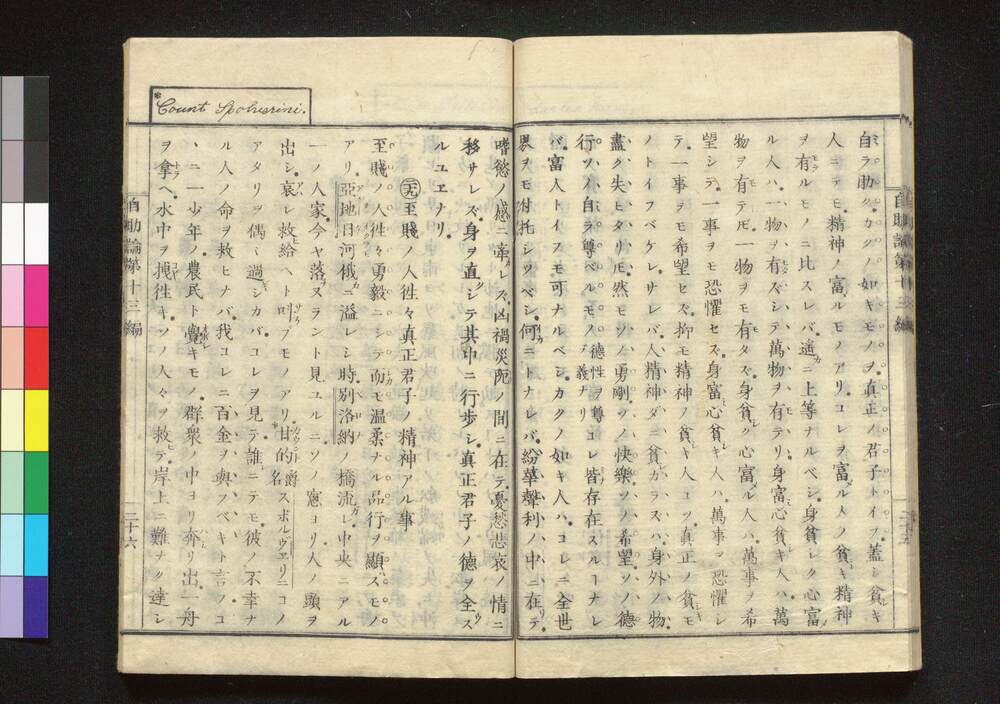 自ラ助ク。カクノ如キモノヲ真正ノ君子トイフ。蓋シ貧キ
人ニテモ精神ノ富ルモノアリ。コレヲ富ル人ノ貧キ精神
ヲ有ルモノニ比スレバ。遥カニ上等ナルベシ。身貧シク心富
ル人ハ。一物ヲ有ズシテ。萬物ヲ有テリ。身富心貧キ人ハ。萬
物ヲ有テドモ。一物ヲモ有タズ。身貧ク心富ル人ハ。萬事ヲ希
望シテ。一事ヲモ恐懼セズ。身富心貧キ人ハ。萬事ヲ恐懼シ
テ。一事ヲモ希望セズ。抑モ精神ノ貧キ人コソ。真正ノ貧モ
ノトイフベケレ。サレバ人精神ダニ貧カラズハ。身外ノ物。
盡ク失モタリトモ。然モソノ勇剛。ソノ快樂。ソノ希望。ソノ德
行。ソノ自ラ尊ベルモノ。德性ヲ尊ブノ義ナリ コレ皆存在スルコナレ
バ。富人トイフモ可ナルベシ。カクノ如キ人ハ。コレニ全世
界ヲモ付托シツベシ。何ニトナレバ。紛華聲利ノ中ニ在テ。
嗜慾ノ惑ニ牽レズ。凶禍災阨ノ間ニ在テ。憂愁悲哀ノ情ニ
移サレズ。身ヲ直クシテ其中ニ行歩シ。真正君子ノ德ヲ全ス
ルユヱナリ
㊁九 至賤ノ人往々真正君子ノ精神アル事
至賤ノ人。往々勇毅ニシテ。而モ温柔ナル品行ヲ顯ズモノ
アリ。亞地日河俄ニ溢レシ時。別洛納ノ橋流レ。中央ニアル
一ノ人家。今ヤ落ヌラント見ユルニ。ソノ窓ヨリ人ノ頭ヲ
出シ。哀レ救給ヘト叫ブモノアリ。甘的爵名スポルウェリニコノ
アタリヲ偶々過シカバ。コレヲ見テ。誰ニテモ彼ノ不幸ナ
ル人ノ命ヲ救ヒナバ。我コレニ百金ヲ與フベキト言フ。コ
ヽニ一少年ノ農民ト覺キモノ。群衆ノ中ヨリ奔リ出。一舟
ヲ拿ヘ。水中ヲ拽往キ。ソノ人々ヲ救テ。岸上ニ難ナク達シ
*Count Spolverini.
自助論第十三編
二十六